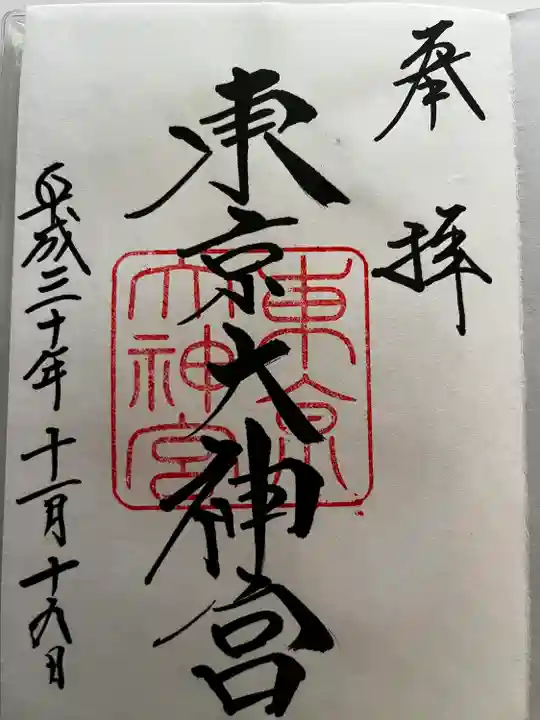 奉拝
東京大神宮
東京大神宮
平成三十年十一月十九日